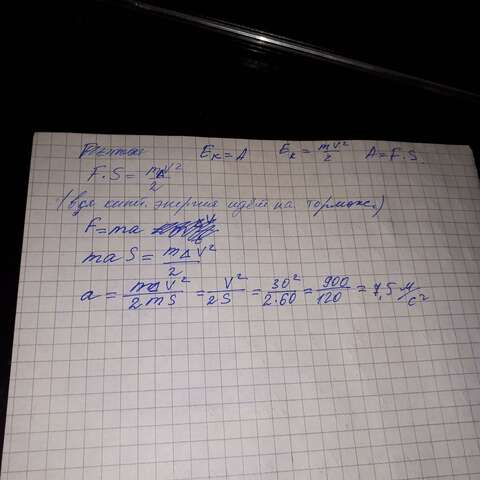 Решение Eк = A Eк = mV²/2 A = F·S.
F·S = mΔV²/2
(вся кинт. энергия идёт на тормож.)
F = ma
ma S = mΔV²/2
a = mΔV²/2mS = V²/2S = 30²/2·60 = 900/120 = 7,5 м/с²